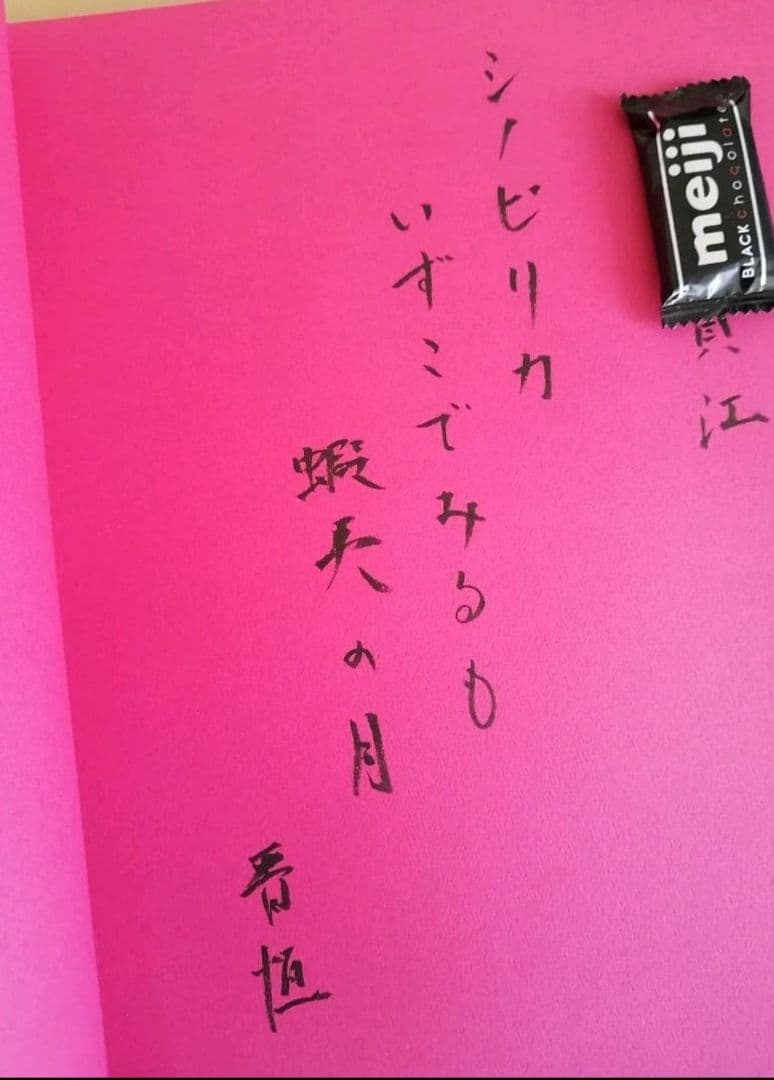 meiji
BLACK chocolate
江
シノビリカ
いずこでみるも
蝦夷の月
恒